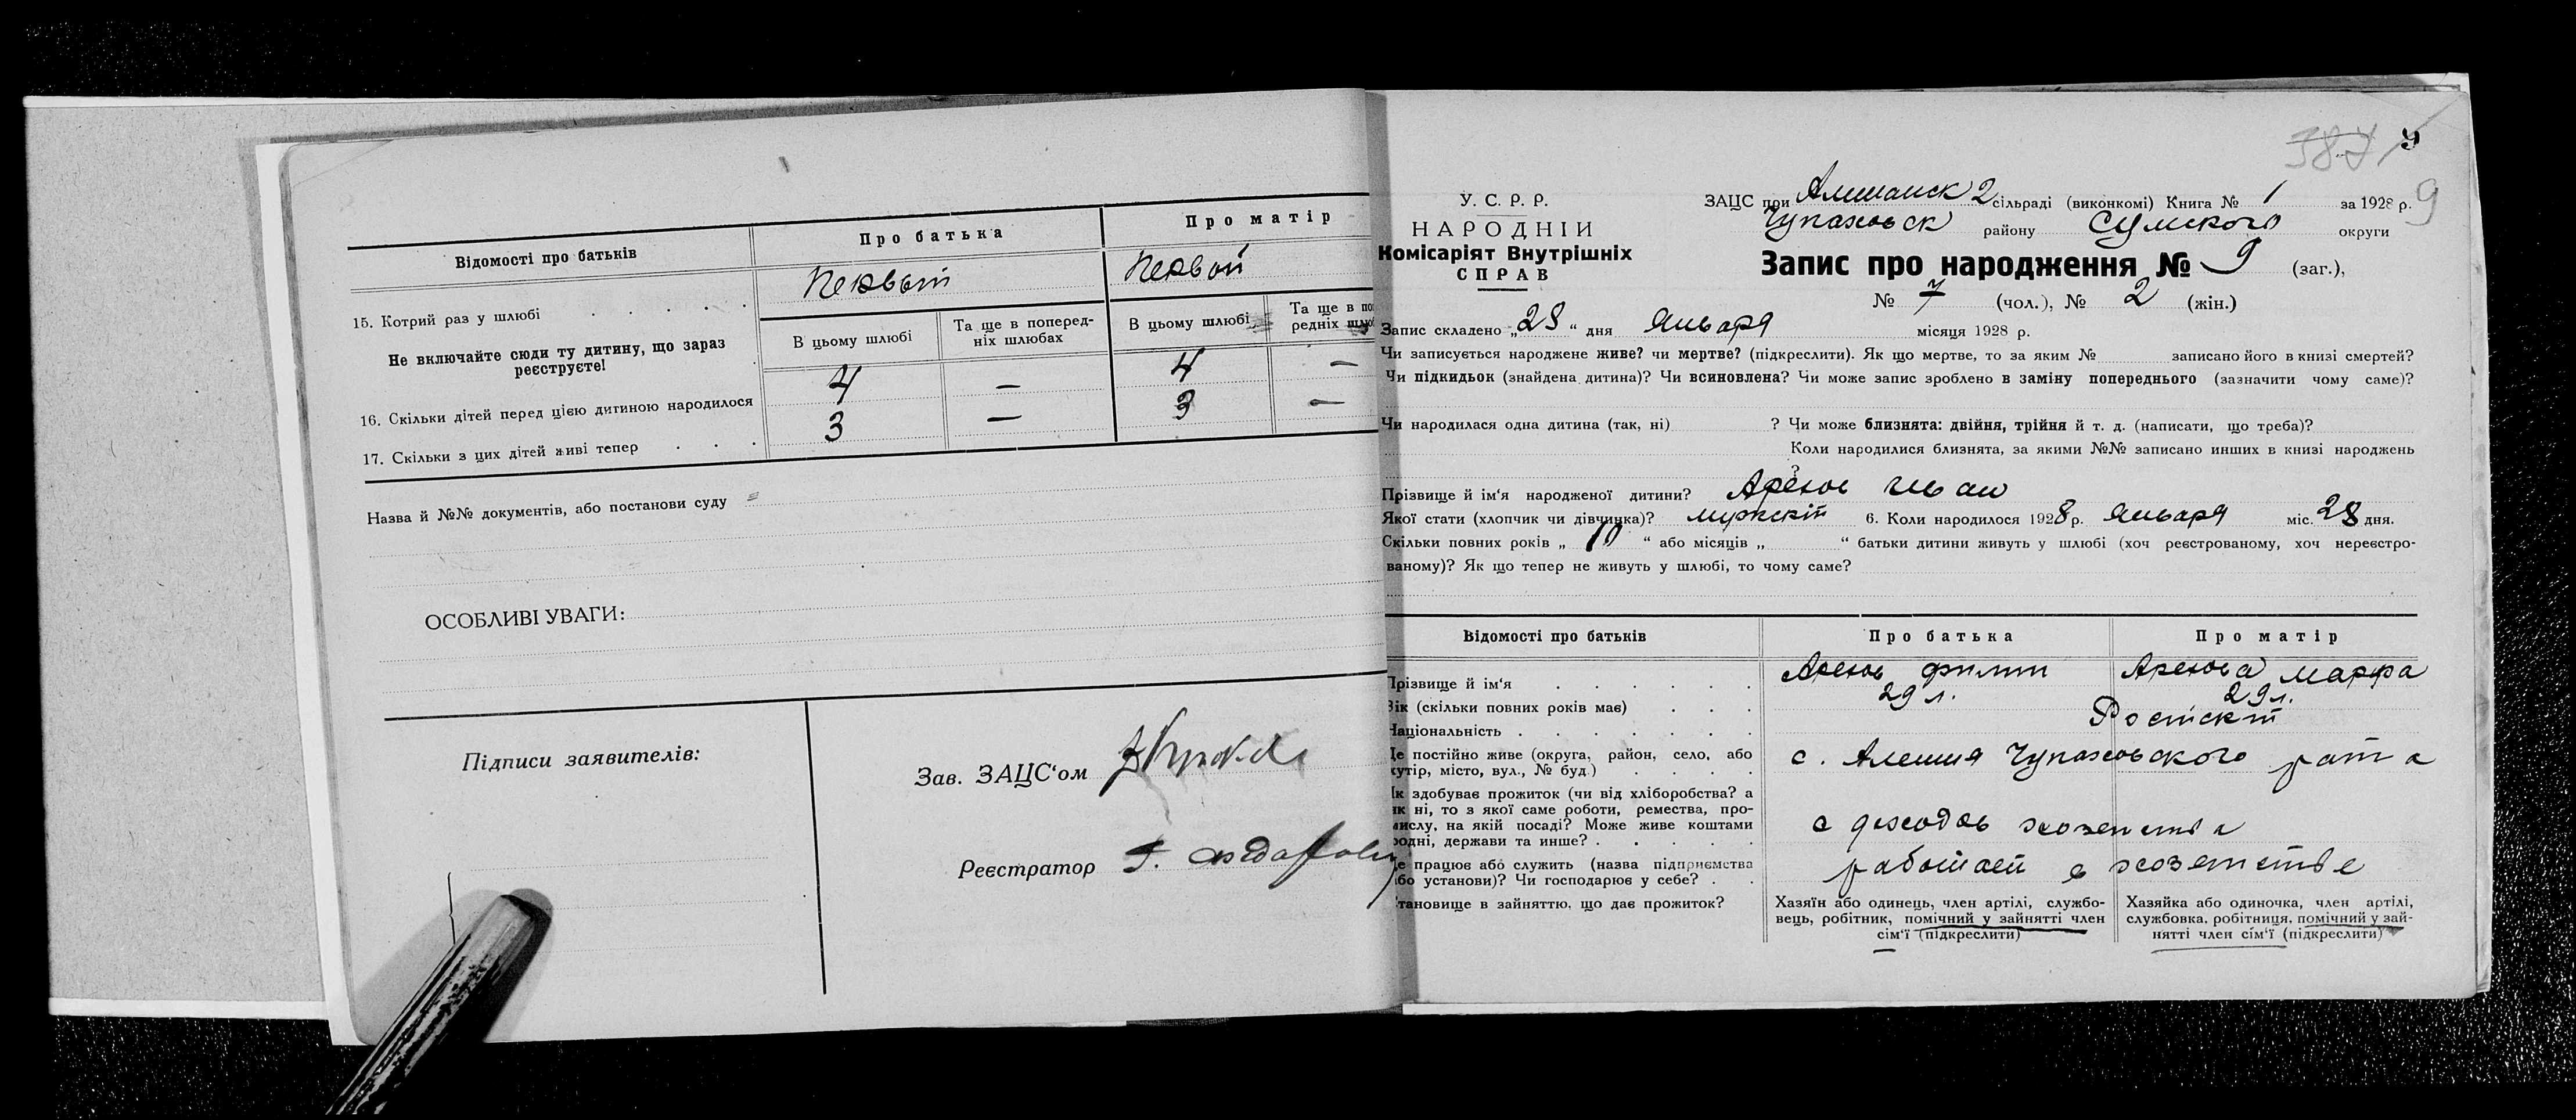 Відомості про батьків
Про батька
Про матір
15. Котрий раз у шлюбі . . . . .
Первый
Первой
Не включайте сюди ту дитину, що зараз
реєструєте!
В цьому шлюбі
Та ще в поперед-
ніх шлюбах
В цьому шлюбі
Та ще в по
редніх шлю
16. Скільки дітей перед цією дитиною народилося
4 — 4 —
17. Скільки з цих дітей живі тепер . . .
3 — 3 —
Назва й №№ документів, або постанови суду
ОСОБЛИВІ УВАГИ:
Підписи заявителів:
Зав. ЗАЦС'ом
Реєстратор
387 9
9
У. С. Р. Р.
НАРОДНІЙ
Комісаріят Внутрішніх
СПРАВ
ЗАЦС при Алешанск 2 сільраді (виконкомі) Книга № 1 за 1928 р.
Чупаховск району Сумского округи
Запис про народження № 9 (заг.),
№ 7 (чол.), № 2 (жін.)
Запис складено „28“ дня Января місяця 1928 р.
Чи записується народжене живе? чи мертве? (підкреслити). Як що мертве, то за яким № записано його в книзі смертей?
Чи підкидьок (знайдена дитина)? Чи всиновлена? Чи може запис зроблено в заміну попереднього (зазначити чому саме)?
Чи народилася одна дитина (так, ні) ? Чи може близнята: двійня, трійня й т. д. (написати, що треба)?
Коли народилися близнята, за якими №№ записано инших в книзі народжень
?
Прізвище й ім'я народженої дитини? Иван
Якої стати (хлопчик чи дівчинка)? мужскій 6. Коли народилося 1928 р. Января міс. 28 дня.
Скільки повних років „ 10 “ або місяців „ “ батьки дитини живуть у шлюбі (хоч реєстрованому, хоч нереєстро-
ваному)? Як що тепер не живуть у шлюбі, то чому саме?
Відомості про батьків
Про батька
Про матір
Прізвище й ім'я . . . . . .
Филип
Марфа
Вік (скільки повних років має) . . .
29 л.
29 л.
Національність . . . . . . .
Де постійно живе (округа, район, село, або
хутір, місто, вул., № буд.) . . . .
с. Алешня Чупаховского
Як здобуває прожиток (чи від хліборобства? а
як ні, то з якої саме роботи, ремества, про-
мислу, на якій посаді? Може живе коштами
родні, держави та инше? . . . . .
с доходов хозяйства
Де працює або служить (назва підприємства
або установи)? Чи господарює у себе? . .
работает в хозяйстве
Становище в зайняттю, що дає прожиток?
Хазяїн або одинець, член артілі, службо-
вець, робітник, помічний у зайнятті член
сім'ї (підкреслити)
Хазяйка або одиночка, член артілі,
службовка, робітниця, помічний у зай-
нятті член сім'ї (підкреслити)